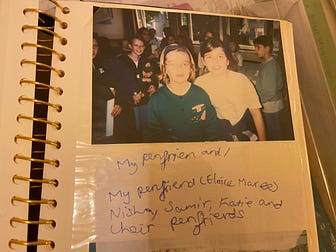 My penfrien and I
My penfriend (Elaine Maree)
Nisha, Samir, Katie and
their penfriends